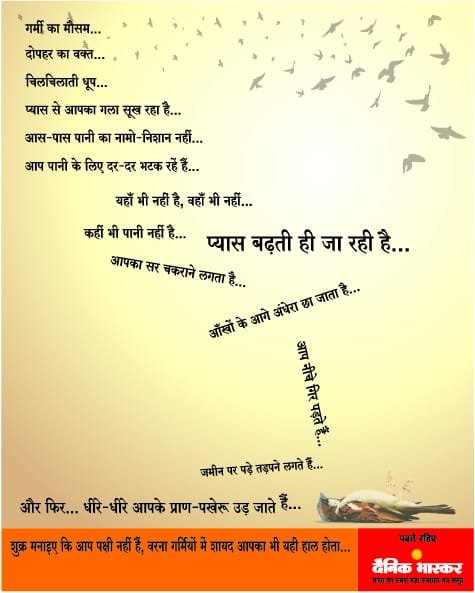 गर्मी का मौसम...
दोपहर का वक्त...
चिलचिलाती धूप...
प्यास से आपका गला सूख रहा है...
आस-पास पानी का नामो-निशान नहीं...
आप पानी के लिए दर-दर भटक रहें हैं...
यहाँ भी नहीं है, वहाँ भी नहीं...
कहीं भी पानी नहीं है...
प्यास बढ़ती ही जा रही है...
आपका सर चकराने लगता है...
आँखों के आगे अंधेरा छा जाता है...
आप नीचे गिर पड़ते हैं...
जमीन पर पड़े तड़पने लगते हैं...
और फिर... धीरे-धीरे आपके प्राण-पखेरू उड़ जाते हैं...
शुक्र मनाइए कि आप पक्षी नहीं हैं, वरना गर्मियों में शायद आपका भी यही हाल होता...
पढ़ते रहिए
दैनिक भास्कर
भारत का सबसे बड़ा समाचार पत्र समूह